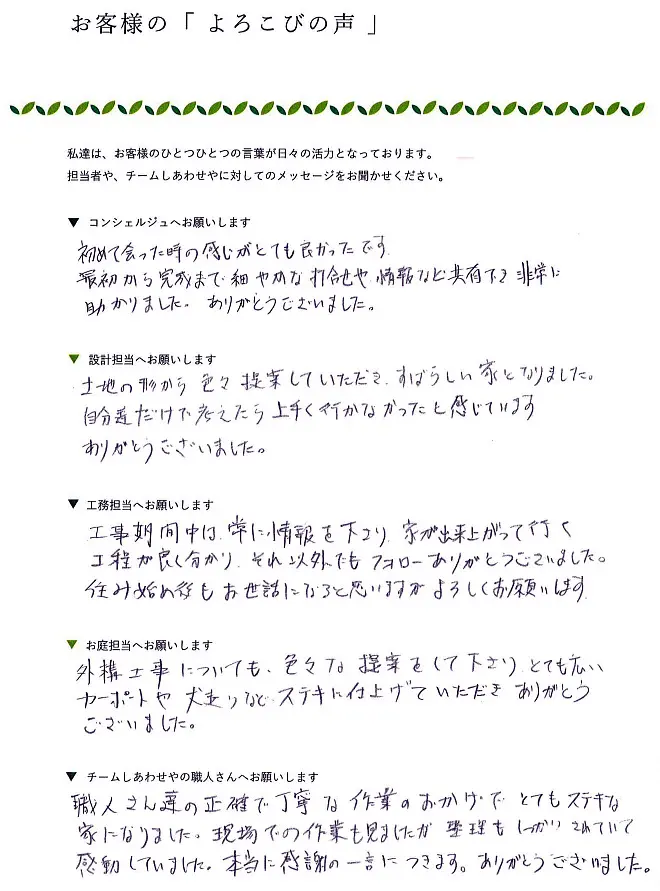 お客様の「よろこびの声」
私達は、お客様のひとつひとつの言葉が日々の活力となっております。
担当者や、チームしあわせやに対してのメッセージをお聞かせください。
▼ コンシェルジュへお願いします
初めて会った時の感じがとても良かったです
最初から完成まで細やかな打合せや、情報など共有でき非常に
助かりました。ありがとうございました。
▼ 設計担当へお願いします
土地の形から色々提案していただき、すばらしい家となりました。
自分達だけで考えたら上手く行かなかったと感じています
ありがとうございました。
▼ 工務担当へお願いします
工事期間中は、常に情報を下さり、家が出来上がって行く
工程が良く分かり、それ以外でもフォローありがとうございました。
住み始め後もお世話になると思いますがよろしくお願いします
▼ お庭担当へお願いします
外構工事についても、色々な提案をして下さり、とても広い
カーポートや犬走りなど、ステキに仕上げていただきありがとう
ございました。
▼ チームしあわせやの職人さんへお願いします
職人さん達の正確で丁寧な作業のおかげでとてもステキな
家になりました。現場での作業も見ましたが整理もしっかりされていて
感動していました。本当に感謝の一言につきます。ありがとうございました。